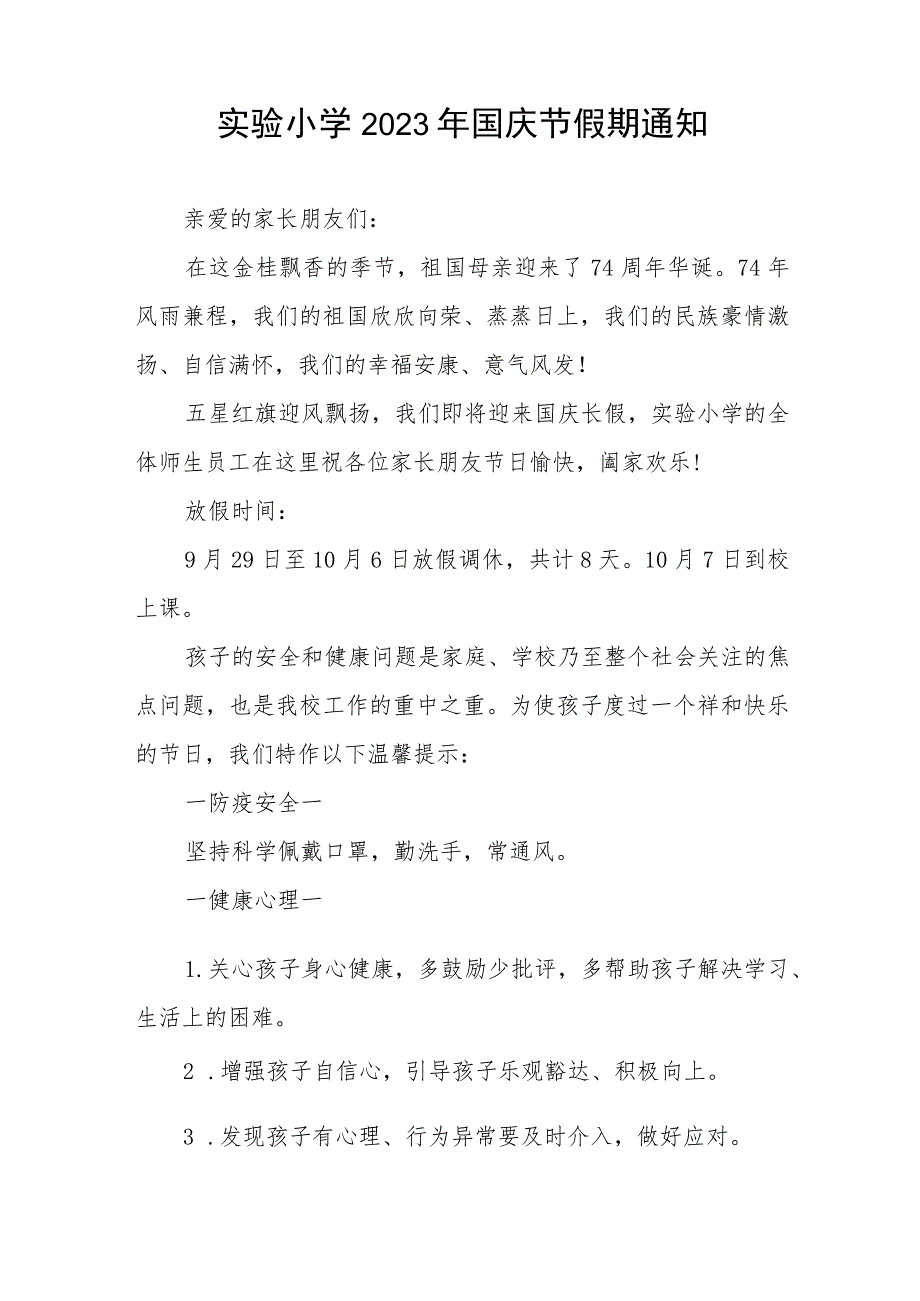 实验小学2023年国庆节假期通知
亲爱的家长朋友们：
在这金桂飘香的季节，祖国母亲迎来了74周年华诞。74年
风雨兼程，我们的祖国欣欣向荣、蒸蒸日上，我们的民族豪情激
扬、自信满怀，我们的幸福安康、意气风发！
五星红旗迎风飘扬，我们即将迎来国庆长假，实验小学的全
体师生员工在这里祝各位家长朋友节日愉快，阖家欢乐!
放假时间：
9月29日至10月6日放假调休，共计8天。10月7日到校
上课。
孩子的安全和健康问题是家庭、学校乃至整个社会关注的焦
点问题，也是我校工作的重中之重。为使孩子度过一个祥和快乐
的节日，我们特作以下温馨提示：
一防疫安全一
坚持科学佩戴口罩，勤洗手，常通风。
一健康心理一
1.关心孩子身心健康，多鼓励少批评，多帮助孩子解决学习、
生活上的困难。
2 .增强孩子自信心，引导孩子乐观豁达、积极向上。
3 .发现孩子有心理、行为异常要及时介入，做好应对。